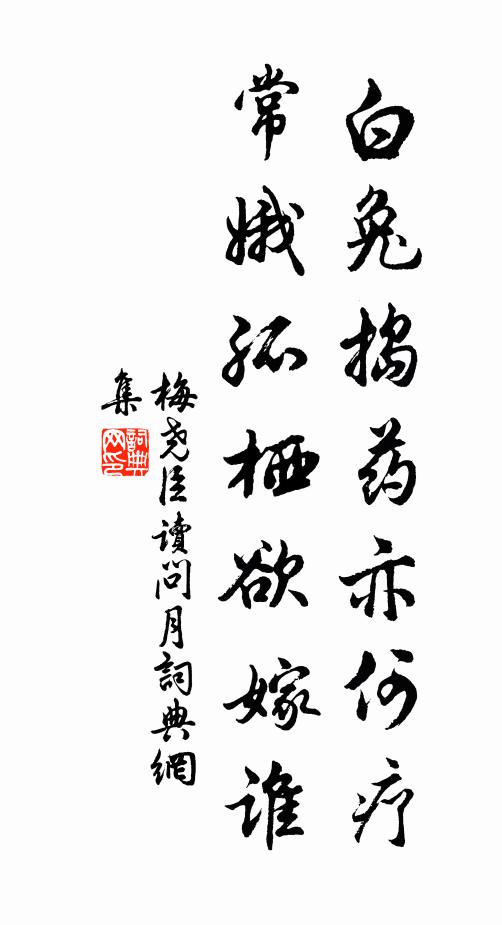 白兔捣药亦何疗
常娥孤栖欲嫁谁
梅尧臣讀问月詞典網
集
詞典网印